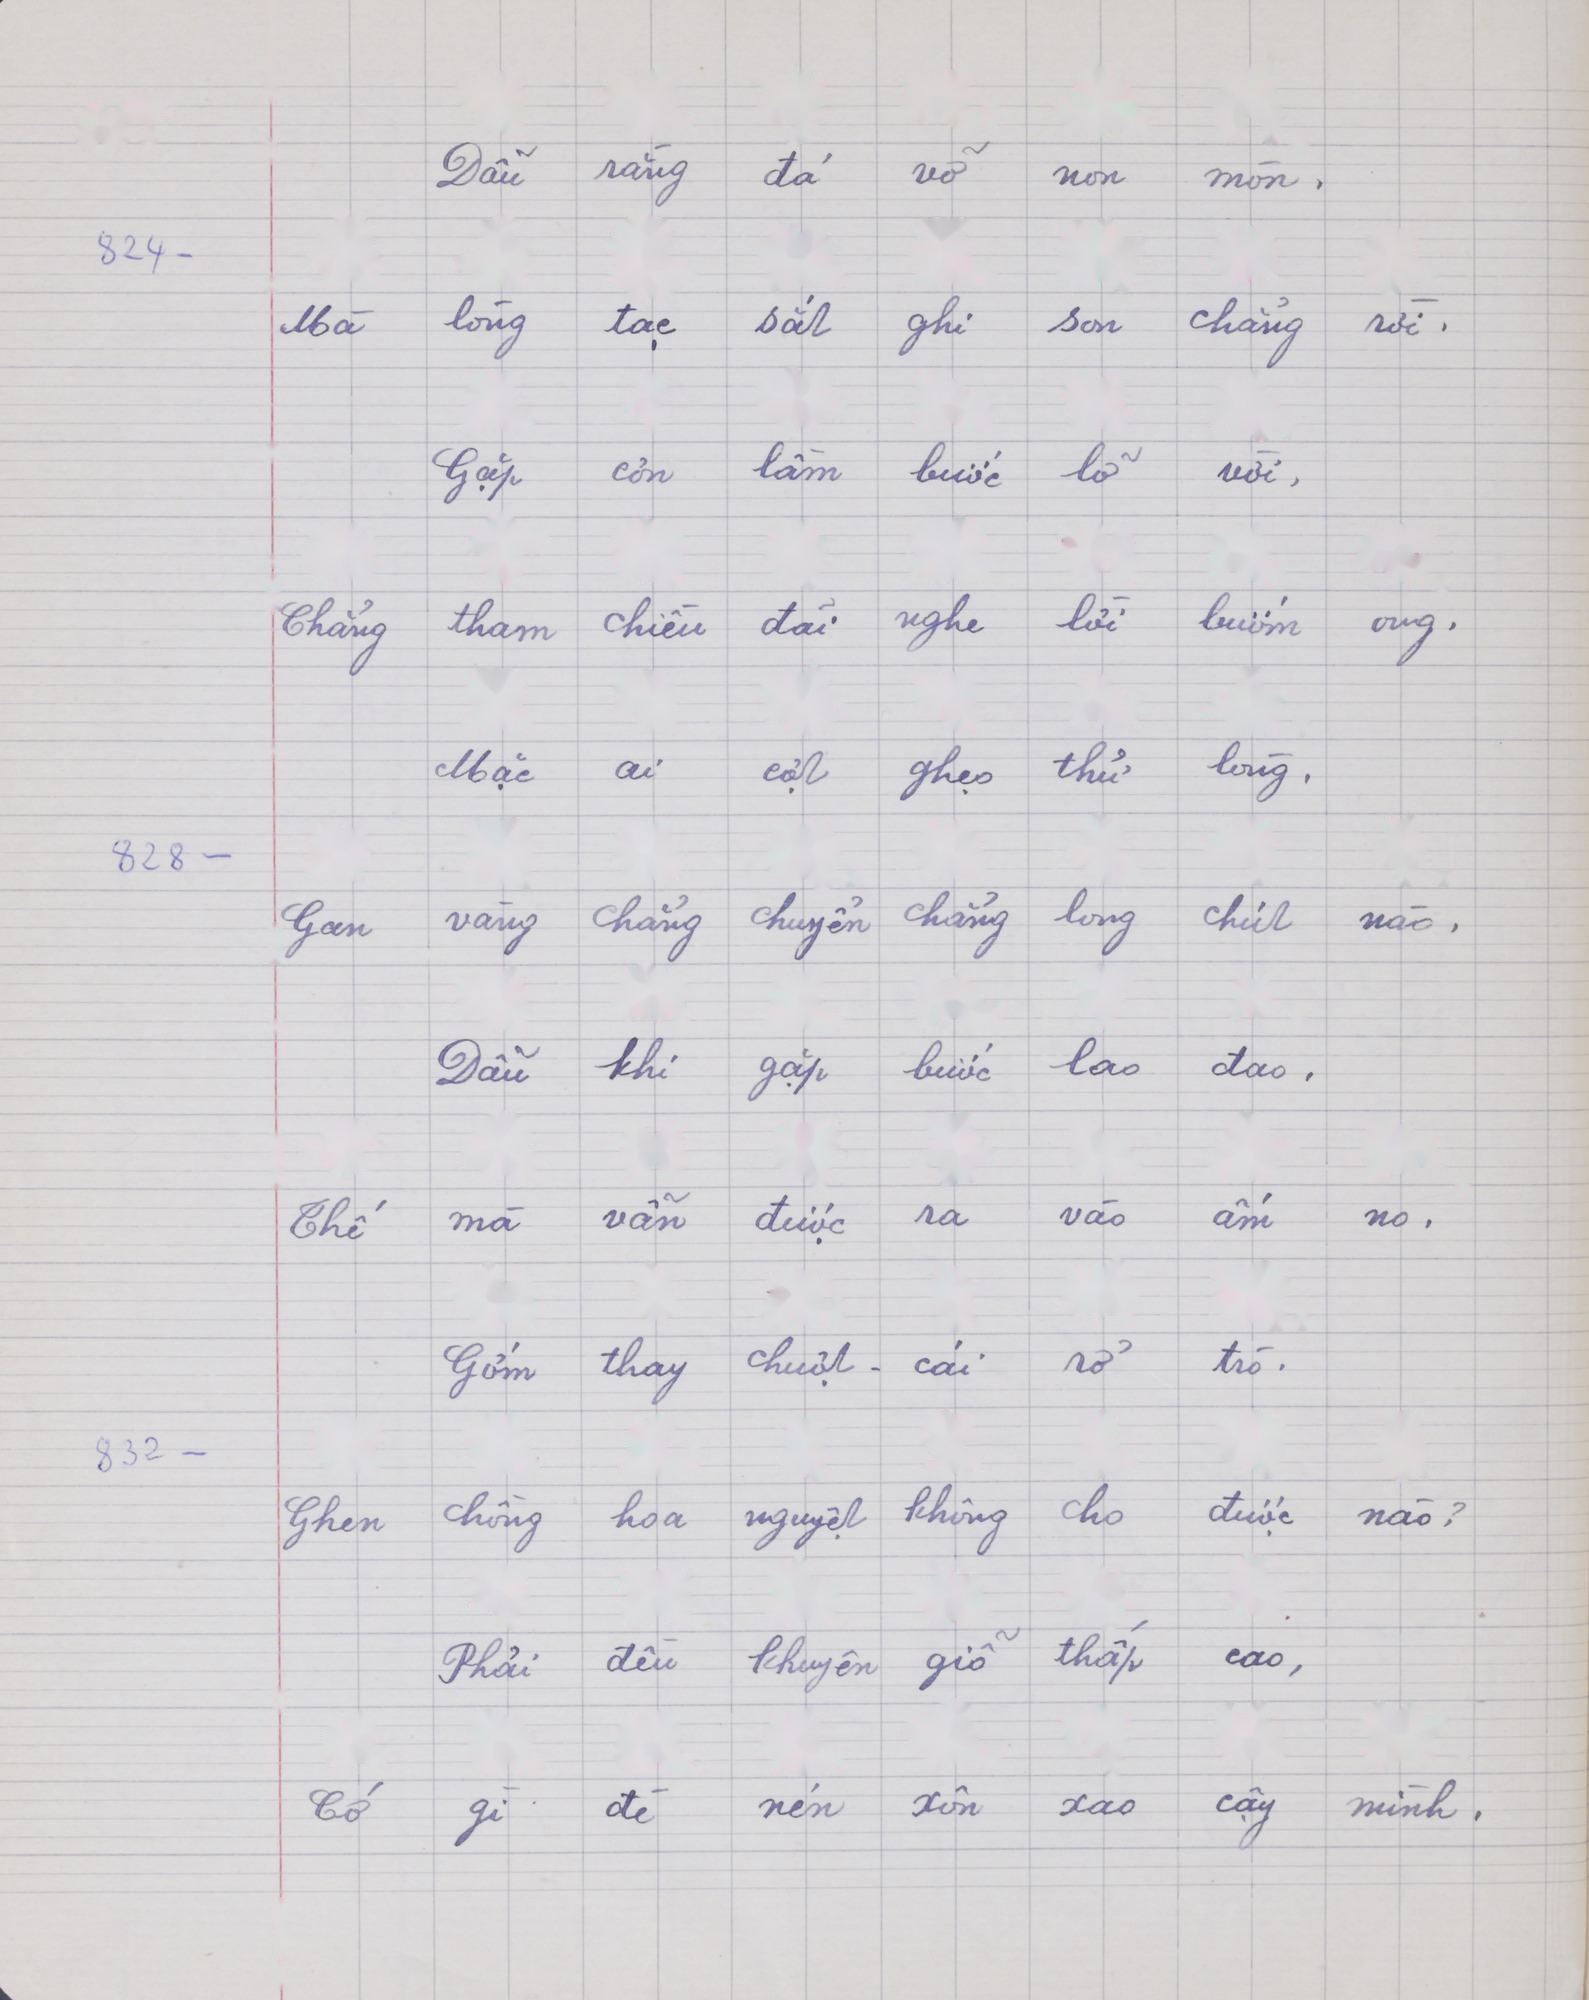 Dẫu rằng đá vỡ non mòn,
824-
Mà lòng tạc sắt ghi son chẳng rời.
Gặp cơn lầm bước lỡ vời,
Chẳng tham chiều đãi nghe lời bướm ong.
Mặc ai cợt ghẹo thử lòng,
828-
Gan vàng chẳng chuyển chẳng long chút nào,
Dẫu khi gặp bước lao đao,
Thế mà vẫn được ra vào ấm no.
Gớm thay chuột-cái rở trò.
832-
Ghen chồng hoa nguyệt không cho được nào?
Phải đều khuyên giỗ thấp cao,
Cớ gì đè nén xôn xao cậy mình.